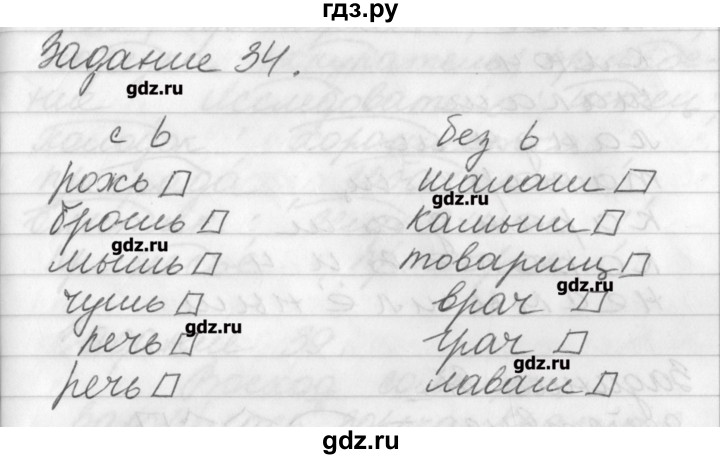 гдз.ру
Задание 34.
gdz.ru
с ь без ь
рожь шалаш
gdz.ru
брошь камыш
gdz.ru
мышь товарищ
gdz.ru
чушь врач
gdz.ru
печь грач
gdz.ru
gdz.ru
речь лаваш
gdz.ru